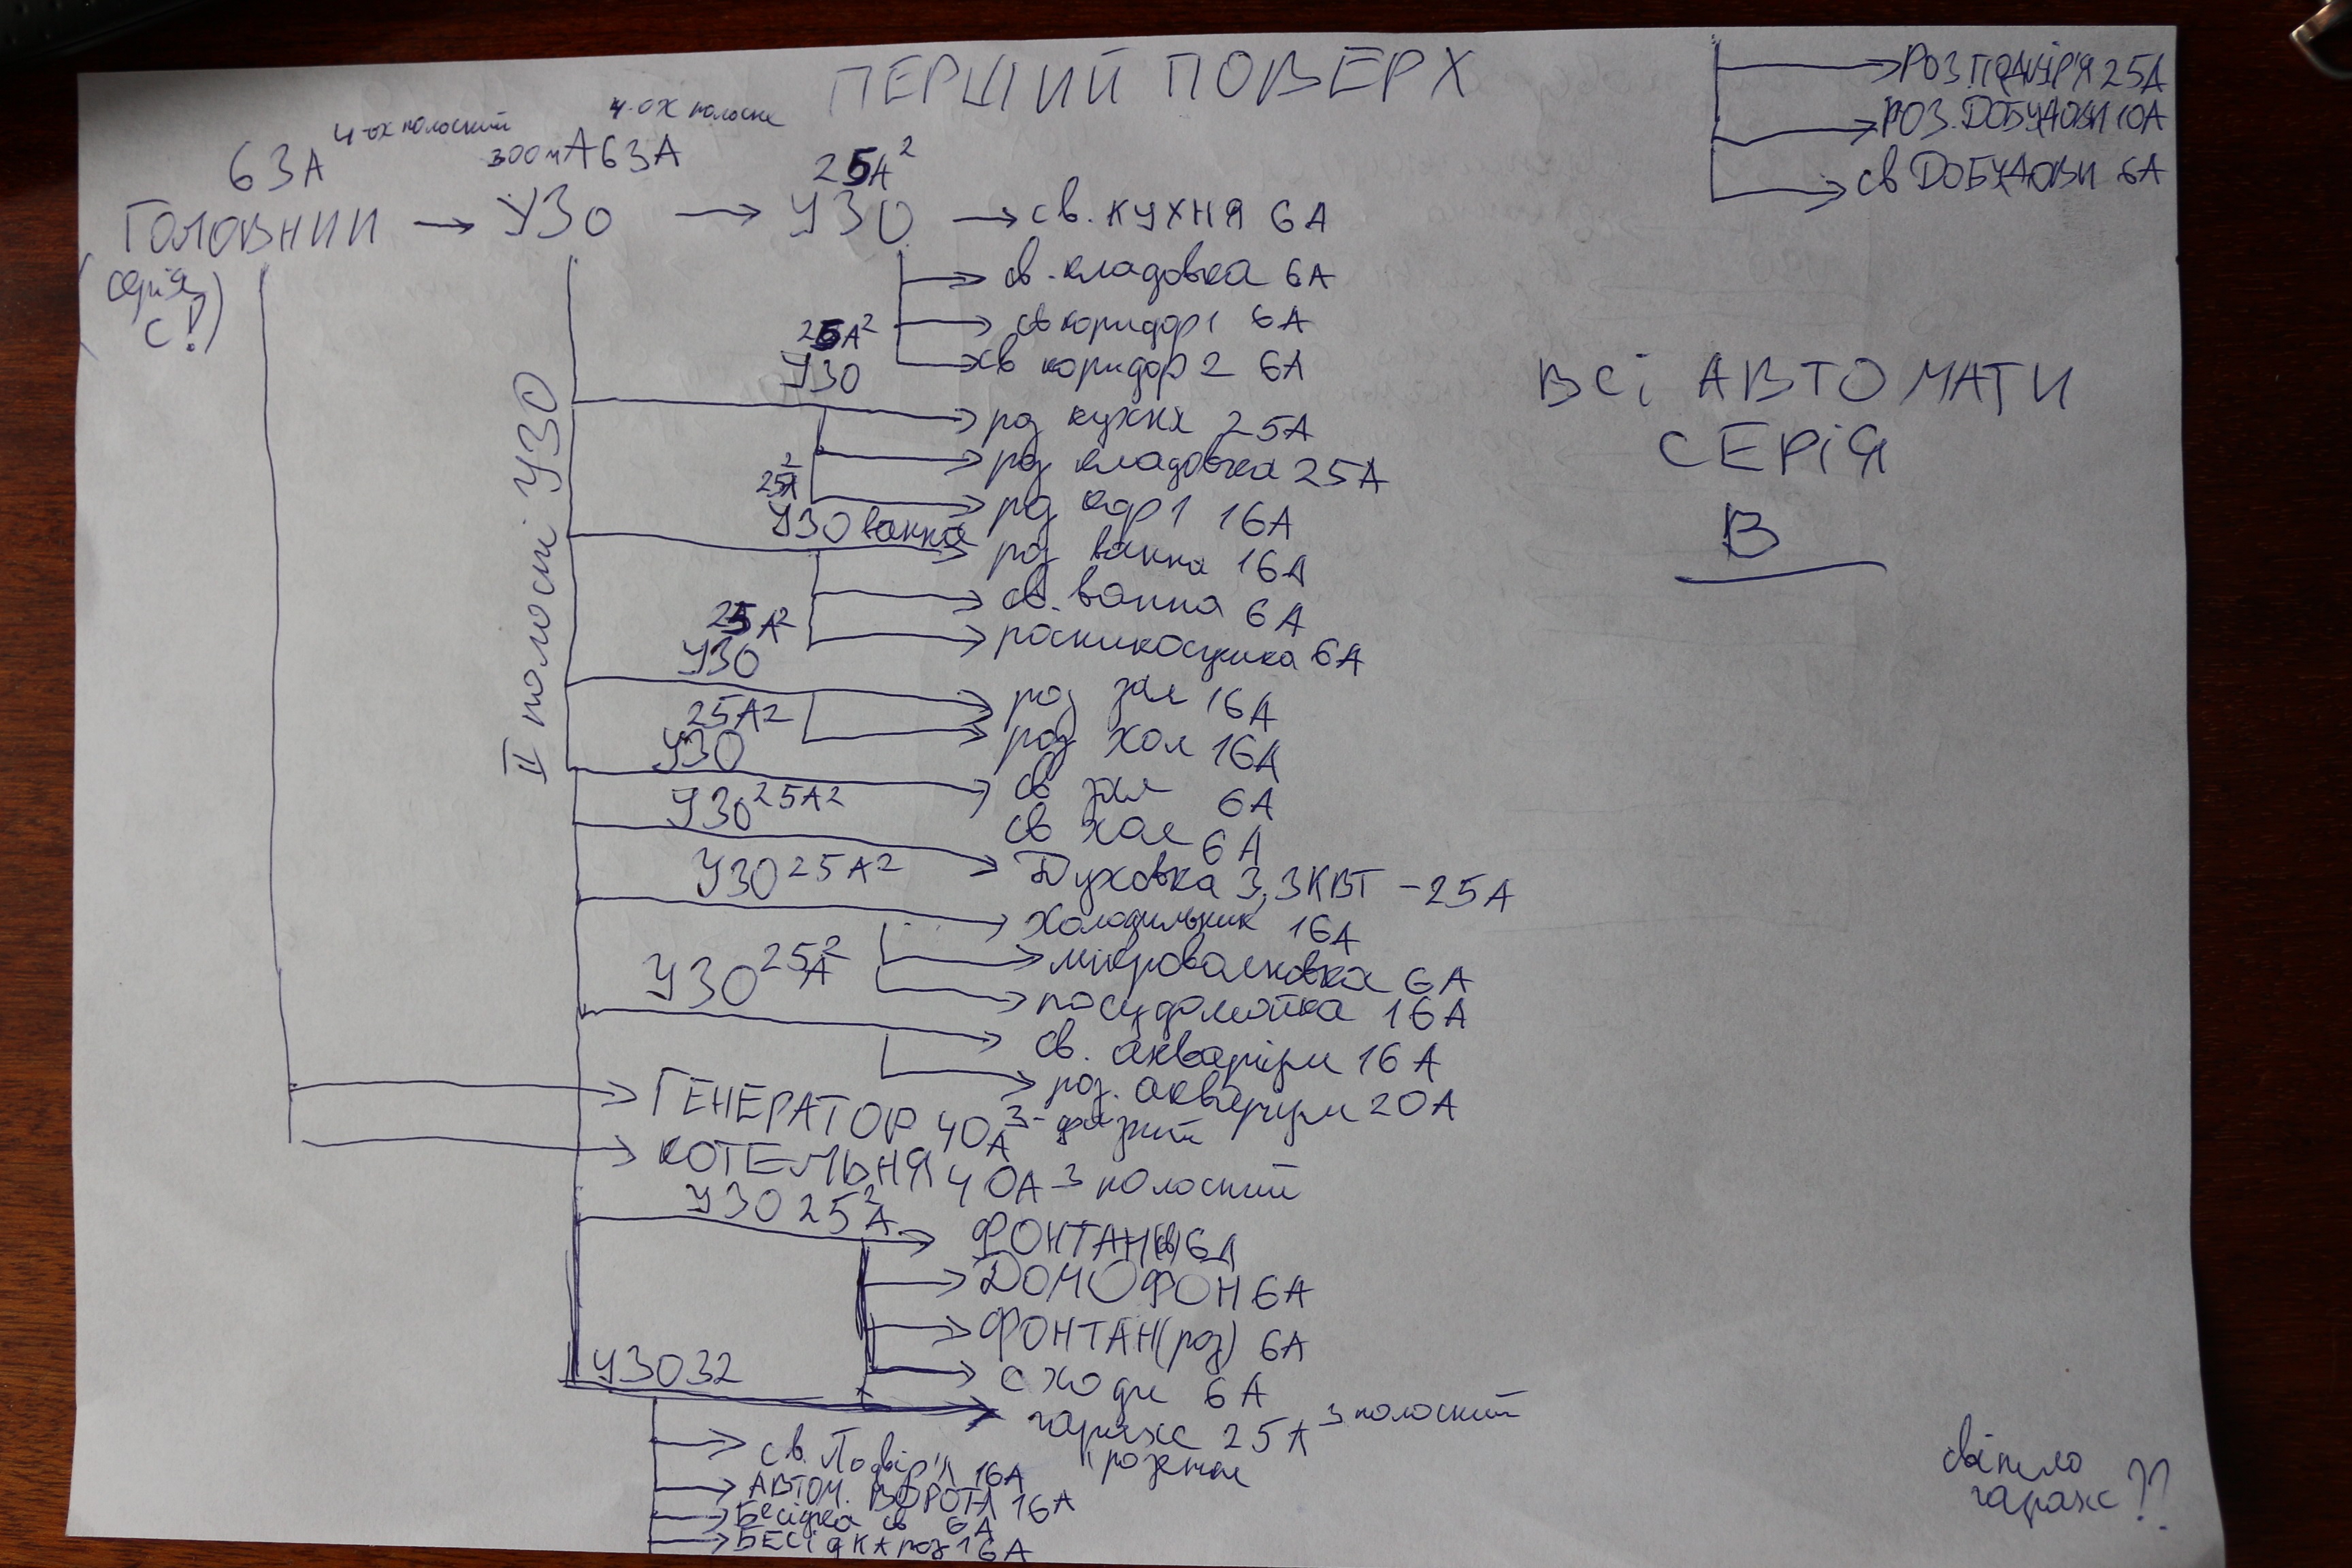 ПЕРШИЙ ПОВЕРХ
РОЗ ПОДВІР'Я 25А
РОЗ. ДОБУДОВИ 10А
св ДОБУДОВИ 6А
4-ох полосний
4-ох полосне
63А
300мА 63А
25А²
ГОЛОВНИЙ → УЗО → УЗО → св. КУХНЯ 6А
(серія С!)
св. кладовка 6А
св коридор 1 6А
25А²
УЗО
св коридор 2 6А
ВСІ АВТОМАТИ
СЕРІЯ
В
II полосні УЗО
роз кухня 25А
роз кладовка 25А
25А²
роз кор 1 16А
УЗО ванна
роз ванна 16А
св. ванна 6А
25А²
УЗО
6А
роз зал 16А
25А2
УЗО
роз хол 16А
св зал 6А
УЗО 25А2
св хол 6А
Духовка 3,3КВТ - 25А
УЗО 25А2
холодильник 16А
мікроволновка 6А
УЗО 25А²
посудомойка 16А
св. акваріум 16А
роз. акваріум 20А
ГЕНЕРАТОР 40А 3-фазний
КОТЕЛЬНЯ 40А 3 полосний
УЗО 25А²
ФОНТАН(св) 6А
ДОМОФОН 6А
ФОНТАН(роз) 6А
сходи 6А
УЗО 32
гараж 25А 3 полосний
розетки
св. Подвір'я 16А
АВТОМ. ВОРОТА 16А
Бесідка св 6А
БЕСІДКА роз 16А
світло
гараж ??